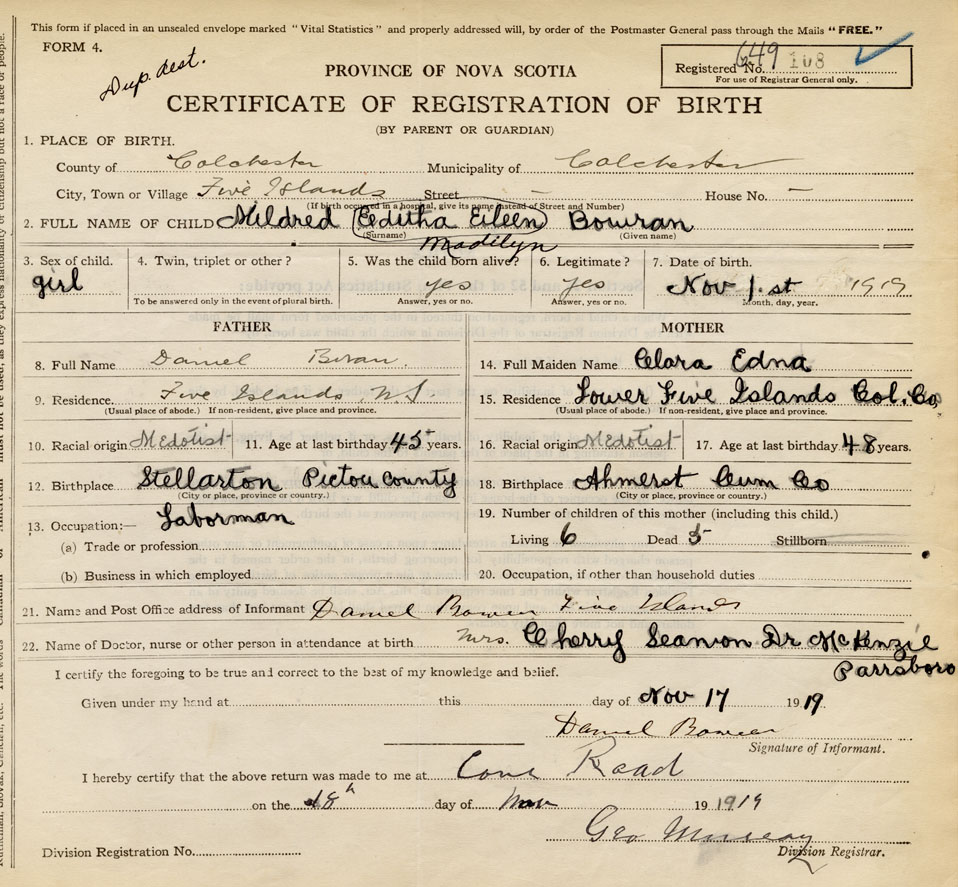 This form if placed in an unsealed envelope marked "Vital Statistics" and properly addressed will, by order of the Postmaster General pass through the Mails "FREE."
FORM 4.
Dup. dest.
Registered No. 649 108
For use of Registrar General only.
PROVINCE OF NOVA SCOTIA
CERTIFICATE OF REGISTRATION OF BIRTH
(BY PARENT OR GUARDIAN)
1. PLACE OF BIRTH.
County of Colchester Municipality of Colchester
City, Town or Village Five Islands Street — House No. —
(If birth occurred in a hospital, give its name instead of Street and Number)
2. FULL NAME OF CHILD Mildred Editha Eileen Bowran
(Surname) (Given name)
Madilyn
3. Sex of child. 4. Twin, triplet or other? 5. Was the child born alive? 6. Legitimate? 7. Date of birth.
girl yes yes Nov 1.st 1919
To be answered only in the event of plural birth. Answer, yes or no. Answer, yes or no. Month, day, year.
FATHER MOTHER
8. Full Name Daniel 14. Full Maiden Name Clara Edna
9. Residence. Five Islands N.S. 15. Residence Lower Five Islands Col. Co.
(Usual place of abode.) If non-resident, give place and province. (Usual place of abode.) If non-resident, give place and province.
10. Racial origin Medotist 11. Age at last birthday 45 years. 16. Racial origin Medotist 17. Age at last birthday 48 years.
12. Birthplace Stellarton Pictou county 18. Birthplace Ahmerst Cum Co
(City or place, province or country.) (City or place, province or country.)
13. Occupation:— Laborman 19. Number of children of this mother (including this child.)
(a) Trade or profession Living 6 Dead 5 Stillborn
(b) Business in which employed 20. Occupation, if other than household duties
21. Name and Post Office address of Informant Daniel Five Islands
22. Name of Doctor, nurse or other person in attendance at birth Mrs. Cherry Dr McKenzie
Parrsboro
I certify the foregoing to be true and correct to the best of my knowledge and belief.
Given under my hand at this day of Nov 17 1919.
Daniel
Signature of Informant.
I hereby certify that the above return was made to me at Road
on the 18 day of Nov 19 1919
Geo Murray
Division Registrar.
Division Registration No.